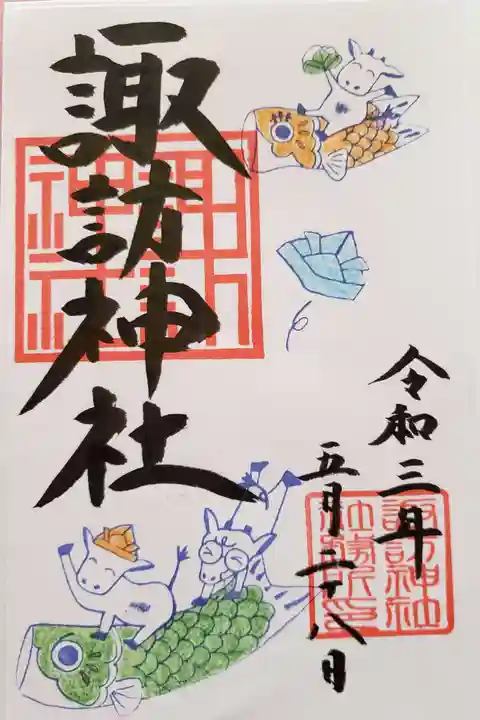 諏訪神社
令和三年
五月二十八日
諏訪神社
社務所印